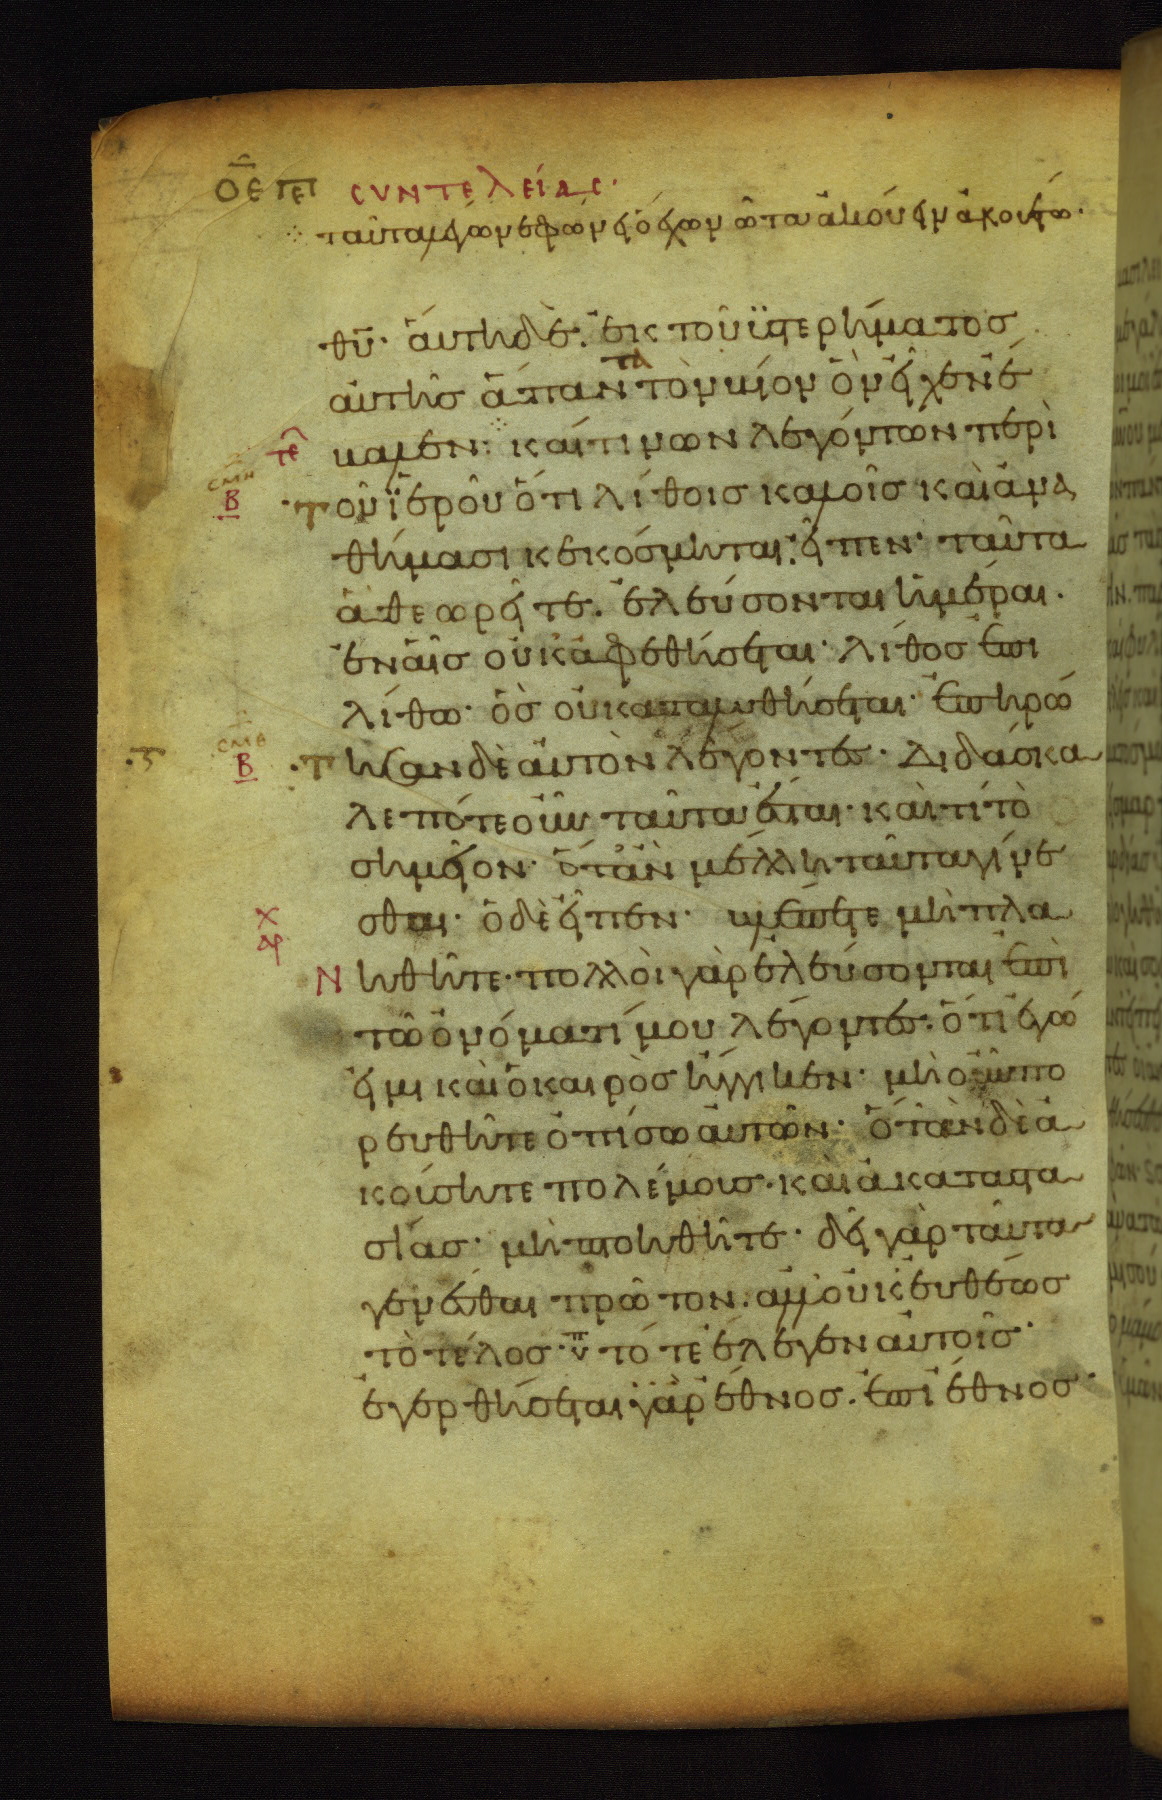 ΟΕ περι συντελείας·
ταῦτα λέγων ἐφώνει ὁ ἔχων ὦτα ἀκούειν ἀκουέτω·
θῡ· αὕτη δὲ· ἐκ τοῦ ὑστερήματος
αὐτῆς ἅπαντα τὸν βίον ὃν εἶχεν ἔ
βαλεν· καί τινων λεγόντων περὶ
τοῦ ἱεροῦ ὅτι λίθοις καλοῖς καὶ ἀνα
θήμασι κεκόσμηται· εἶπεν· ταῦτα
ἃ θεωρεῖτε. ἐλεύσονται ἡμέραι.
ἐν αἷς οὐκ ἀφεθήσεται· λίθος ἐπὶ
λίθω· ὃς οὐ καταλυθήσεται· ἐπηρώ
τησαν δὲ αὐτὸν λέγοντες· Διδάσκα
λε πότε οὖν ταῦτα ἔσται· καὶ τί τὸ
σημεῖον· ὅταν μέλλη ταῦτα γίνε
σθαι· ὁ δὲ εἶπεν· βλέπετε μὴ πλα
νηθῆτε· πολλοὶ γὰρ ἐλεύσονται ἐπὶ
τῶ ὀνόματί μου λέγοντες· ὅτι ἐγώ
εἰμι καὶ ὁ καιρὸς ἤγγικεν· μὴ οὖν πο
ρευθῆτε ὀπίσω αὐτῶν· ὅταν δὲ ἀ
κούσητε πολέμους· καὶ ἀκαταστα
σίας· μὴ πτοηθῆτε· δεῖ γὰρ ταῦτα
γενέσθαι πρῶτον· ἀλλ' οὐκ εὐθέως
τὸ τέλος· τότε ἔλεγεν αὐτοῖς·
ἐγερθήσεται γὰρ ἔθνος· ἐπὶ ἔθνος·
τε
σμη
Β
σμθ
Β
χ
αρ